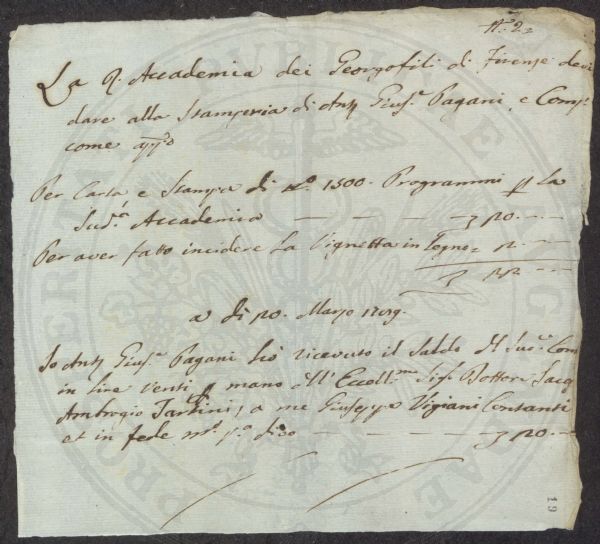 N.º 2
La R. Accademica dei Georgofili di Firenze deve
dare alla Stamperia di Ant. Gius.e Pagani, e Comp.
come app.o
Per Carta e Stampa di N.o 1500. Programmi p La
Sud.a Accademica — — — 20. — —
Per aver fatto incidere La Vignetta in Legno
a di 20. Marzo
Io Ant. Gius.e Pagani hò ricevuto il Saldo del Sud.o Con
in lire venti p mano dell' Eccell.mo Sig.r Dottore
Ambrogio Tartini, a me Giuseppe Vigiani Contanti
et in fede m.o p.a dico — — — 20. —
19